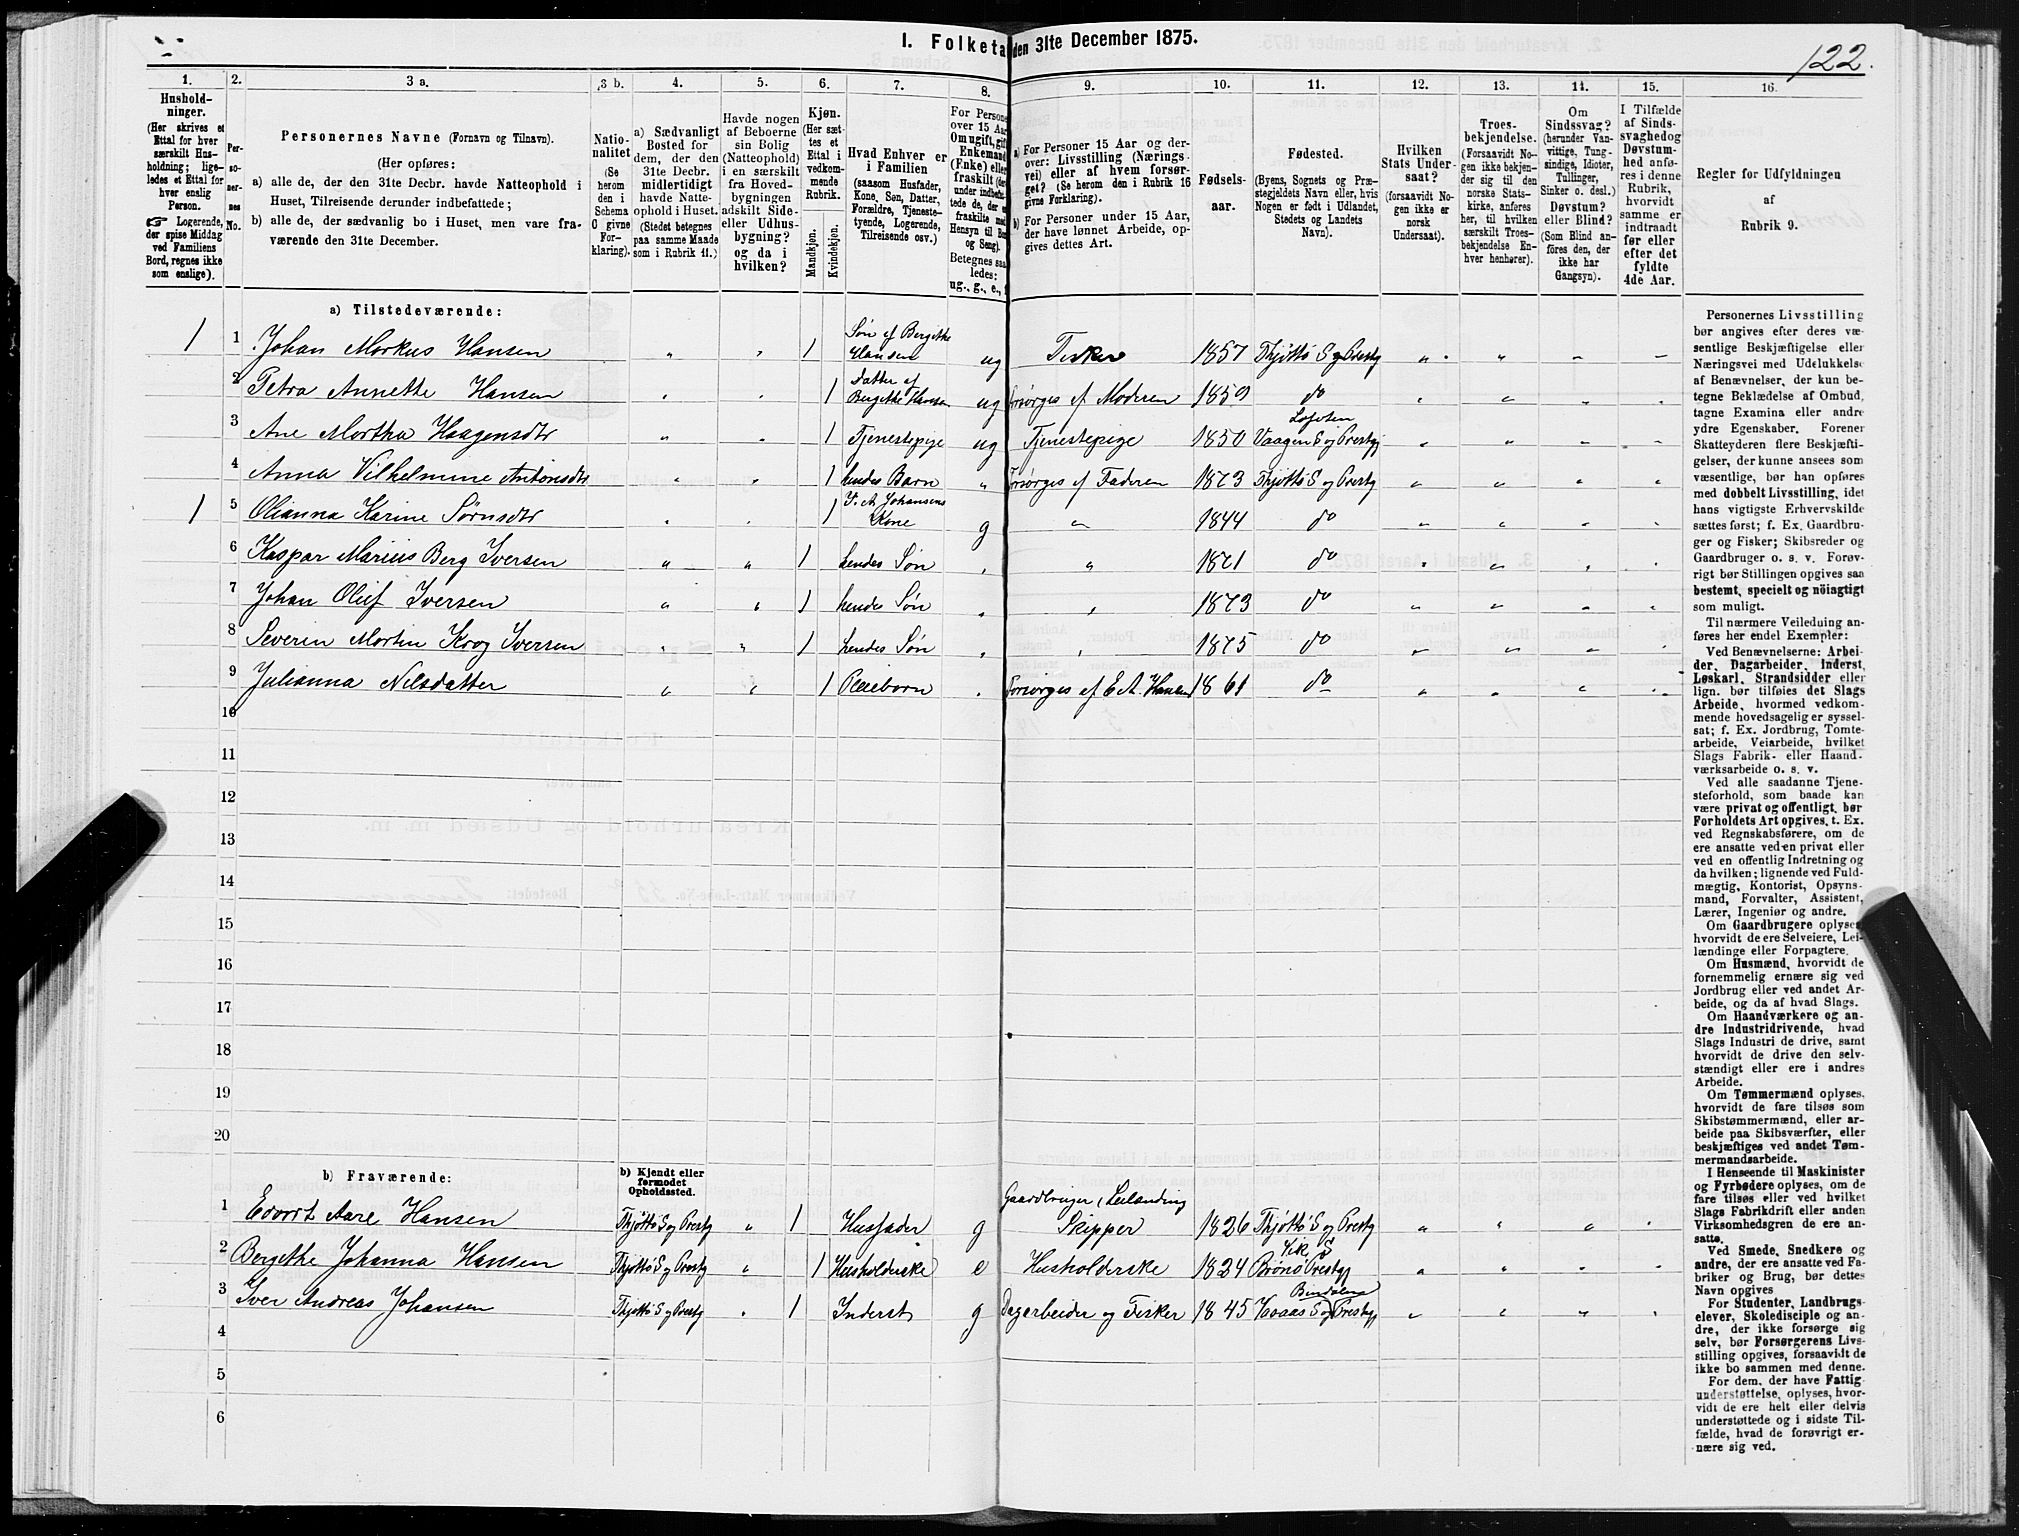 I. Folketa den 31te December 1875.
122.
1. 2. 3 a. 3 b. 4. 5. 6. 7. 8. 9. 10. 11. 12. 13. 14. 15. 16.
Hushold-
ninger.
(Her skrives et
Ettal for hver
særskilt Hus-
holdning; lige-
ledes et Ettal for
hver enslig
Person.
☞ Logerende,
der spise Middag
ved Familiens
Bord, regnes ikke
som enslige).
Per-
so-
ner-
nes
No.
Personernes Navne (Fornavn og Tilnavn).
(Her opføres:
a) alle de, der den 31te Decbr. havde Natteophold i
Huset, Tilreisende derunder indbefattede;
b) alle de, der sædvanlig bo i Huset, men vare fra-
værende den 31te December.
Natio-
nalitet
(Se
herom
den i
Schema
O givne
For-
klaring).
a) Sædvanligt
Bosted for
dem, der den
31te Decbr.
midlertidigt
havde Natte-
ophold i Huset.
(Stedet betegnes
paa samme Maade
som i Rubrik 11.)
Havde nogen
af Beboerne
sin Bolig
(Natteophold)
i en særskilt
fra Hoved-
bygningen
adskilt Side-
eller Udhus-
bygning?
og da i
hvilken?
Kjøn.
(Her sæt-
tes et
Ettal i
vedkom-
mende
Rubrik.
Mandkjøn.
Kvindekjøn.
Hvad Enhver er
i Familien
(saasom Husfader,
Kone, Søn, Datter,
Forældre, Tjeneste-
tyende, Logerende,
Tilreisende osv.)
For Persone
over 15 Aar
Om ugift, gift
Enkemand
(Enke) eller
fraskilt (der
under indbefat-
tede de, der e
fraskilte med
Hensyn til Bor
og Seng).
Betegnes saa
ledes:
ug., g., e., f
a) For Personer 15 Aar og der-
over: Livsstilling (Nærings-
vei) eller af hvem forsør-
get? (Se herom den i Rubrik 16
givne Forklaring).
b) For Personer under 15 Aar,
der have lønnet Arbeide, op-
gives dettes Art.
Fødsels-
aar.
Fødested.
(Byens, Sognets og Præ-
stegjeldets Navn eller, hvis
Nogen er født i Udlandet,
Stedets og Landets
Navn).
Hvilken
Stats Under-
saat?
(forsaavidt No-
gen ikke er
norsk
Undersaat).
Troes-
bekjendelse.
(Forsaavidt No-
gen ikke bekjen-
der sig til den
norske Stats-
kirke, anføres
her, til hvilken
særskilt Troes-
bekjendelse En-
hver henhører).
Om
Sindssvag?
(herunder Van-
vittige, Tung-
sindige, Idioter,
Tullinger,
Sinker o. desl.)
Døvstum?
eller Blind?
(Som Blind an-
føres den, der
ikke har
Gangsyn).
I Tilfælde
af Sinds-
svaghed og
Døvstum-
hed anfø-
res i denne
Rubrik,
hvorvidt
samme er
indtraadt
før eller
efter det
fyldte
4de Aar.
Regler for Udfyldningen
af
Rubrik 9.
a) Tilstedeværende:
1 1 Johan Markus Hansen " " 1 Søn af Bergethe Hansen ug Fisker 1857 Thjøttø S og Prestg " " " "
2 Petra Annette Hansen " " 1 Datter af Bergethe Hansen ug Forsørges af Moderen 1859 do " " " "
3 Ane Martha Haagensdtr " " 1 Tjenestepige ug Tjenestepige 1850 Lofoten Vaagen S og Prestgj " " " "
4 Anna Vilhelmine Antonsdtr " " 1 hendes Barn " Forsørges af Faderen 1873 Thjøttø S og Prestg " " " "
1 5 Olianna Karine Sørnsdtr " " 1 I. A. Johansens Kone g " 1844 do " " " "
6 Kaspar Marius Berg Iversen " " 1 hendes Søn " " 1871 do " " " "
7 Johan Oluf Iversen " " 1 hendes Søn " " 1873 do " " " "
8 Severin Martin Krog Iversen " " 1 hendes Søn " " 1875 do " " " "
9 Julianna Nilsdatter " " 1 Pleiebarn " Forsørges af E A. Hansen 1861 do " " " "
10
11
12
13
14
15
16
17
18
19
20
b) Fraværende:
b) Kjendt eller
formodet
Opholdssted.
1 Edvort Aare Hansen Thjøttø S og Prestg " 1 Husfader g Gaardbruger, Leilænding Skipper 1826 Thjøttø S og Prestg " " " "
2 Bergethe Johanna Hansen Thjøttø S og Prestg " 1 Husholderske e Husholderske 1824 Vik S Brønø Prestgj " " " "
3 Iver Andreas Johansen Thjøttø S og Prestg " 1 Inderst g Dagarbeider og Fisker 1845 Bindalens Vaaas S og Prestgj " " " "
4
5
6
Personernes Livsstilling
bør angives efter deres væ-
sentlige Beskjæftigelse eller
Næringsvei med Udelukkelse
af Benævnelser, der kun be-
tegne Beklædelse af Ombud,
tagne Examina eller andre
ydre Egenskaber. Forener
Skatteyderen flere Beskjæfti-
gelser, der kunne ansees som
væsentlige, bør han opføres
med dobbelt Livsstilling, idet
hans vigtigste Erhvervskilde
sættes først; f. Ex. Gaardbru-
ger og Fisker; Skibsreder og
Gaardbruger o. s. v. Forøv-
rigt bør Stillingen opgives saa
bestemt, specielt og nöiagtigt
som muligt.
Til nærmere Veiledning an-
føres her endel Exempler:
Ved Benævnelserne: Arbei-
der, Dagarbeider, Inderst,
Løskarl, Strandsidder eller
lign. bør tilføies det Slags
Arbeide, hvormed vedkom-
mende hovedsagelig er syssel-
sat; f. Ex. Jordbrug, Tomte-
arbeide, Veiarbeide, hvilket
Slags Fabrik- eller Haand-
værksarbeide o. s. v.
Ved alle saadanne Tjene-
steforhold, som baade kan
være privat og offentligt, bør
Forholdets Art opgives, t. Ex.
ved Regnskabsførere, om de
ere ansatte ved en privat eller
ved en offentlig Indretning og
da hvilken; lignende ved Fuld-
mægtig, Kontorist, Opsyns-
mand, Forvalter, Assistent,
Lærer, Ingeniør og andre.
Om Gaardbrugere oplyses,
hvorvidt de ere Selveiere, Lei-
lændinge eller Forpagtere.
Om Husmænd, hvorvidt de
fornemmelig ernære sig ved
Jordbrug eller ved andet Ar-
beide, og da af hvad Slags.
Om Haandværkere og an-
dre Industridrivende, hvad
Slags Industri de drive, samt
hvorvidt de drive den selv-
stændigt eller ere i andres
Arbeide.
Om Tømmermænd oplyses,
hvorvidt de fare tilsøs som
Skibstømmermænd, eller ar-
beide paa Skibsværfter, eller
beskjæftiges ved andet Tøm-
mermandsarbeide.
I Henseende til Maskinister
og Fyrbødere oplyses, om de
fare tilsøs eller ved hvilket
Slags Fabrikdrift eller anden
Virksomhedsgren de ere an-
satte.
Ved Smede, Snedkere og
andre, der ere ansatte ved Fa-
briker og Brug, bør dettes
Navn opgives
For Studenter, Landbrugs-
elever, Skoledisciple og an-
dre, der ikke forsørge sig
selv, bør Forsørgerens Livs-
stilling opgives, forsaavidt de
ikke bo sammen med denne.
For dem, der have Fattig-
understøttelse, oplyses, hvor-
vidt de ere helt eller delvis
understøttede og i sidste Til-
fælde, hvad de forøvrigt er-
nære sig ved.